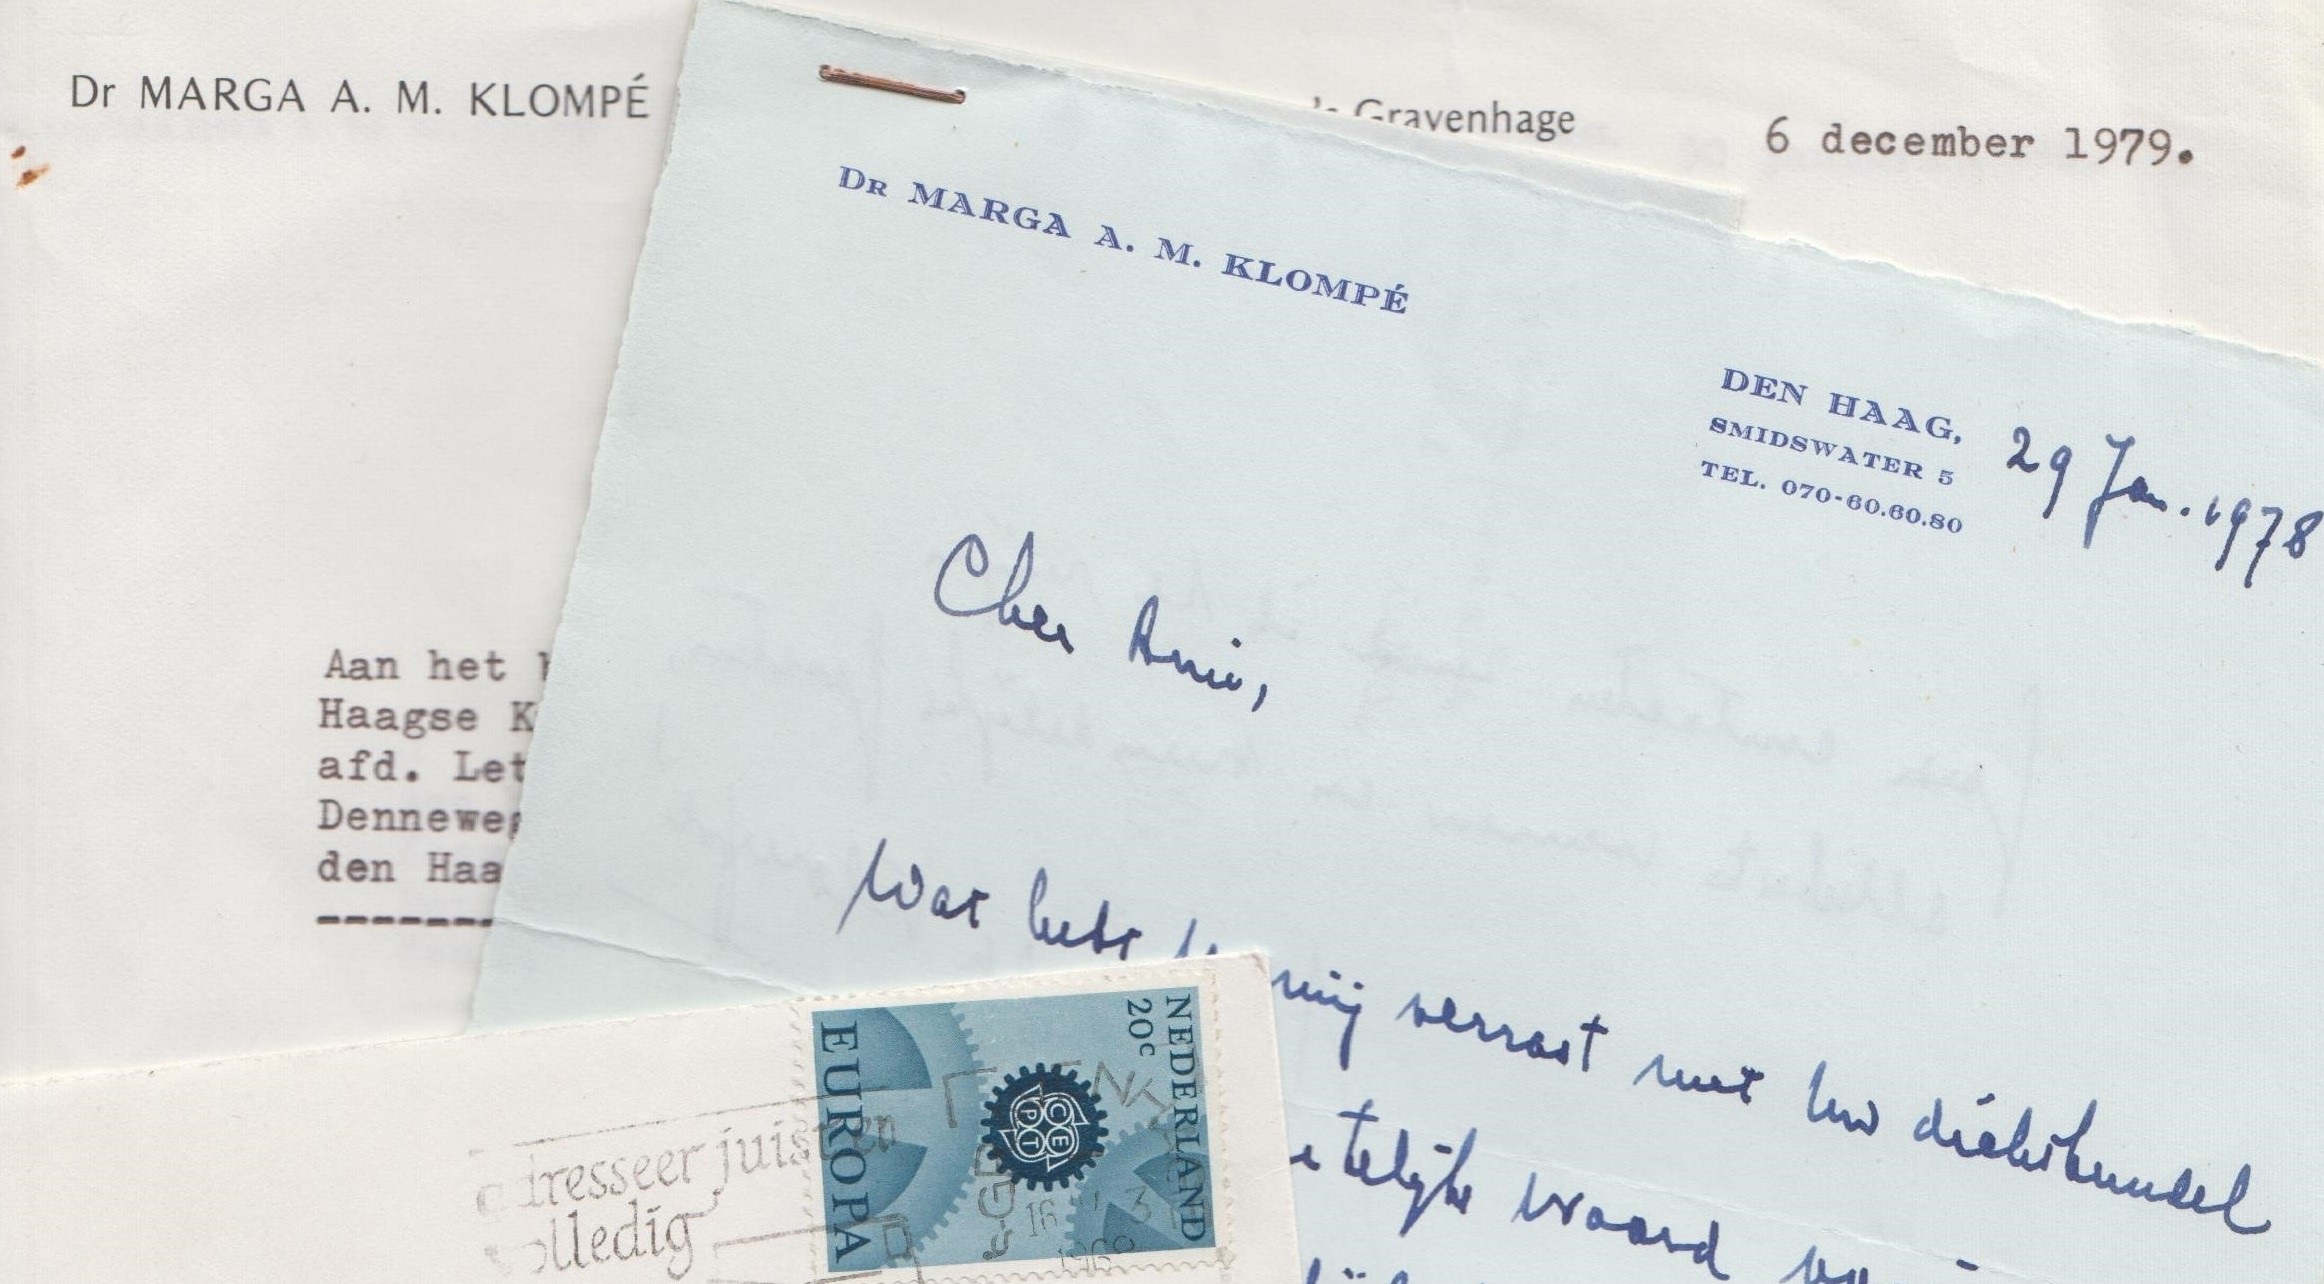 Dr MARGA A. M. KLOMPÉ
's-Gravenhage
6 december 1979.
Aan het
Haagse K
afd. Let
Denneweg
den Haa
DR MARGA A. M. KLOMPÉ
DEN HAAG,
SMIDSWATER 5
TEL. 070-60.60.80
29 Jan. 1978
Cher
Wat hebt U mij verrast met Uw dichtbundel
woord
NEDERLAND
20c
EUROPA
CEPT
adresseer juist en
volledig
16